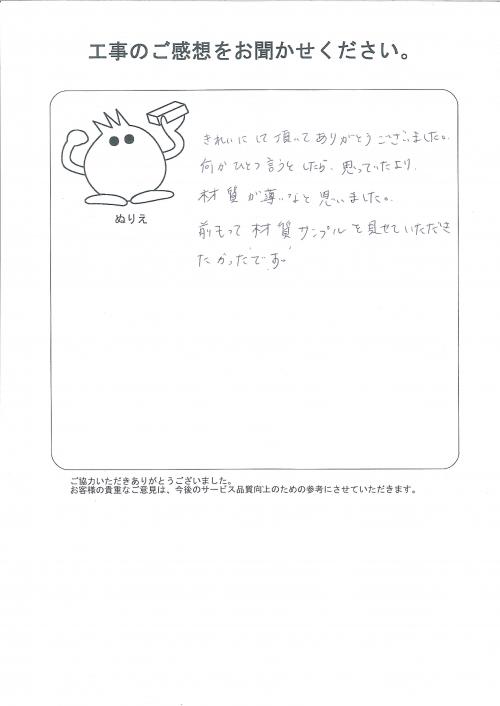 工事のご感想をお聞かせください。
きれいにして頂いてありがとうございました。
何かひとつ言うとしたら、思っていたより、
材質が薄いなと思いました。
前もって材質サンプルを見せていただき
たかったです。
ぬりえ
ご協力いただきありがとうございました。
お客様の貴重なご意見は、今後のサービス品質向上のための参考にさせていただきます。